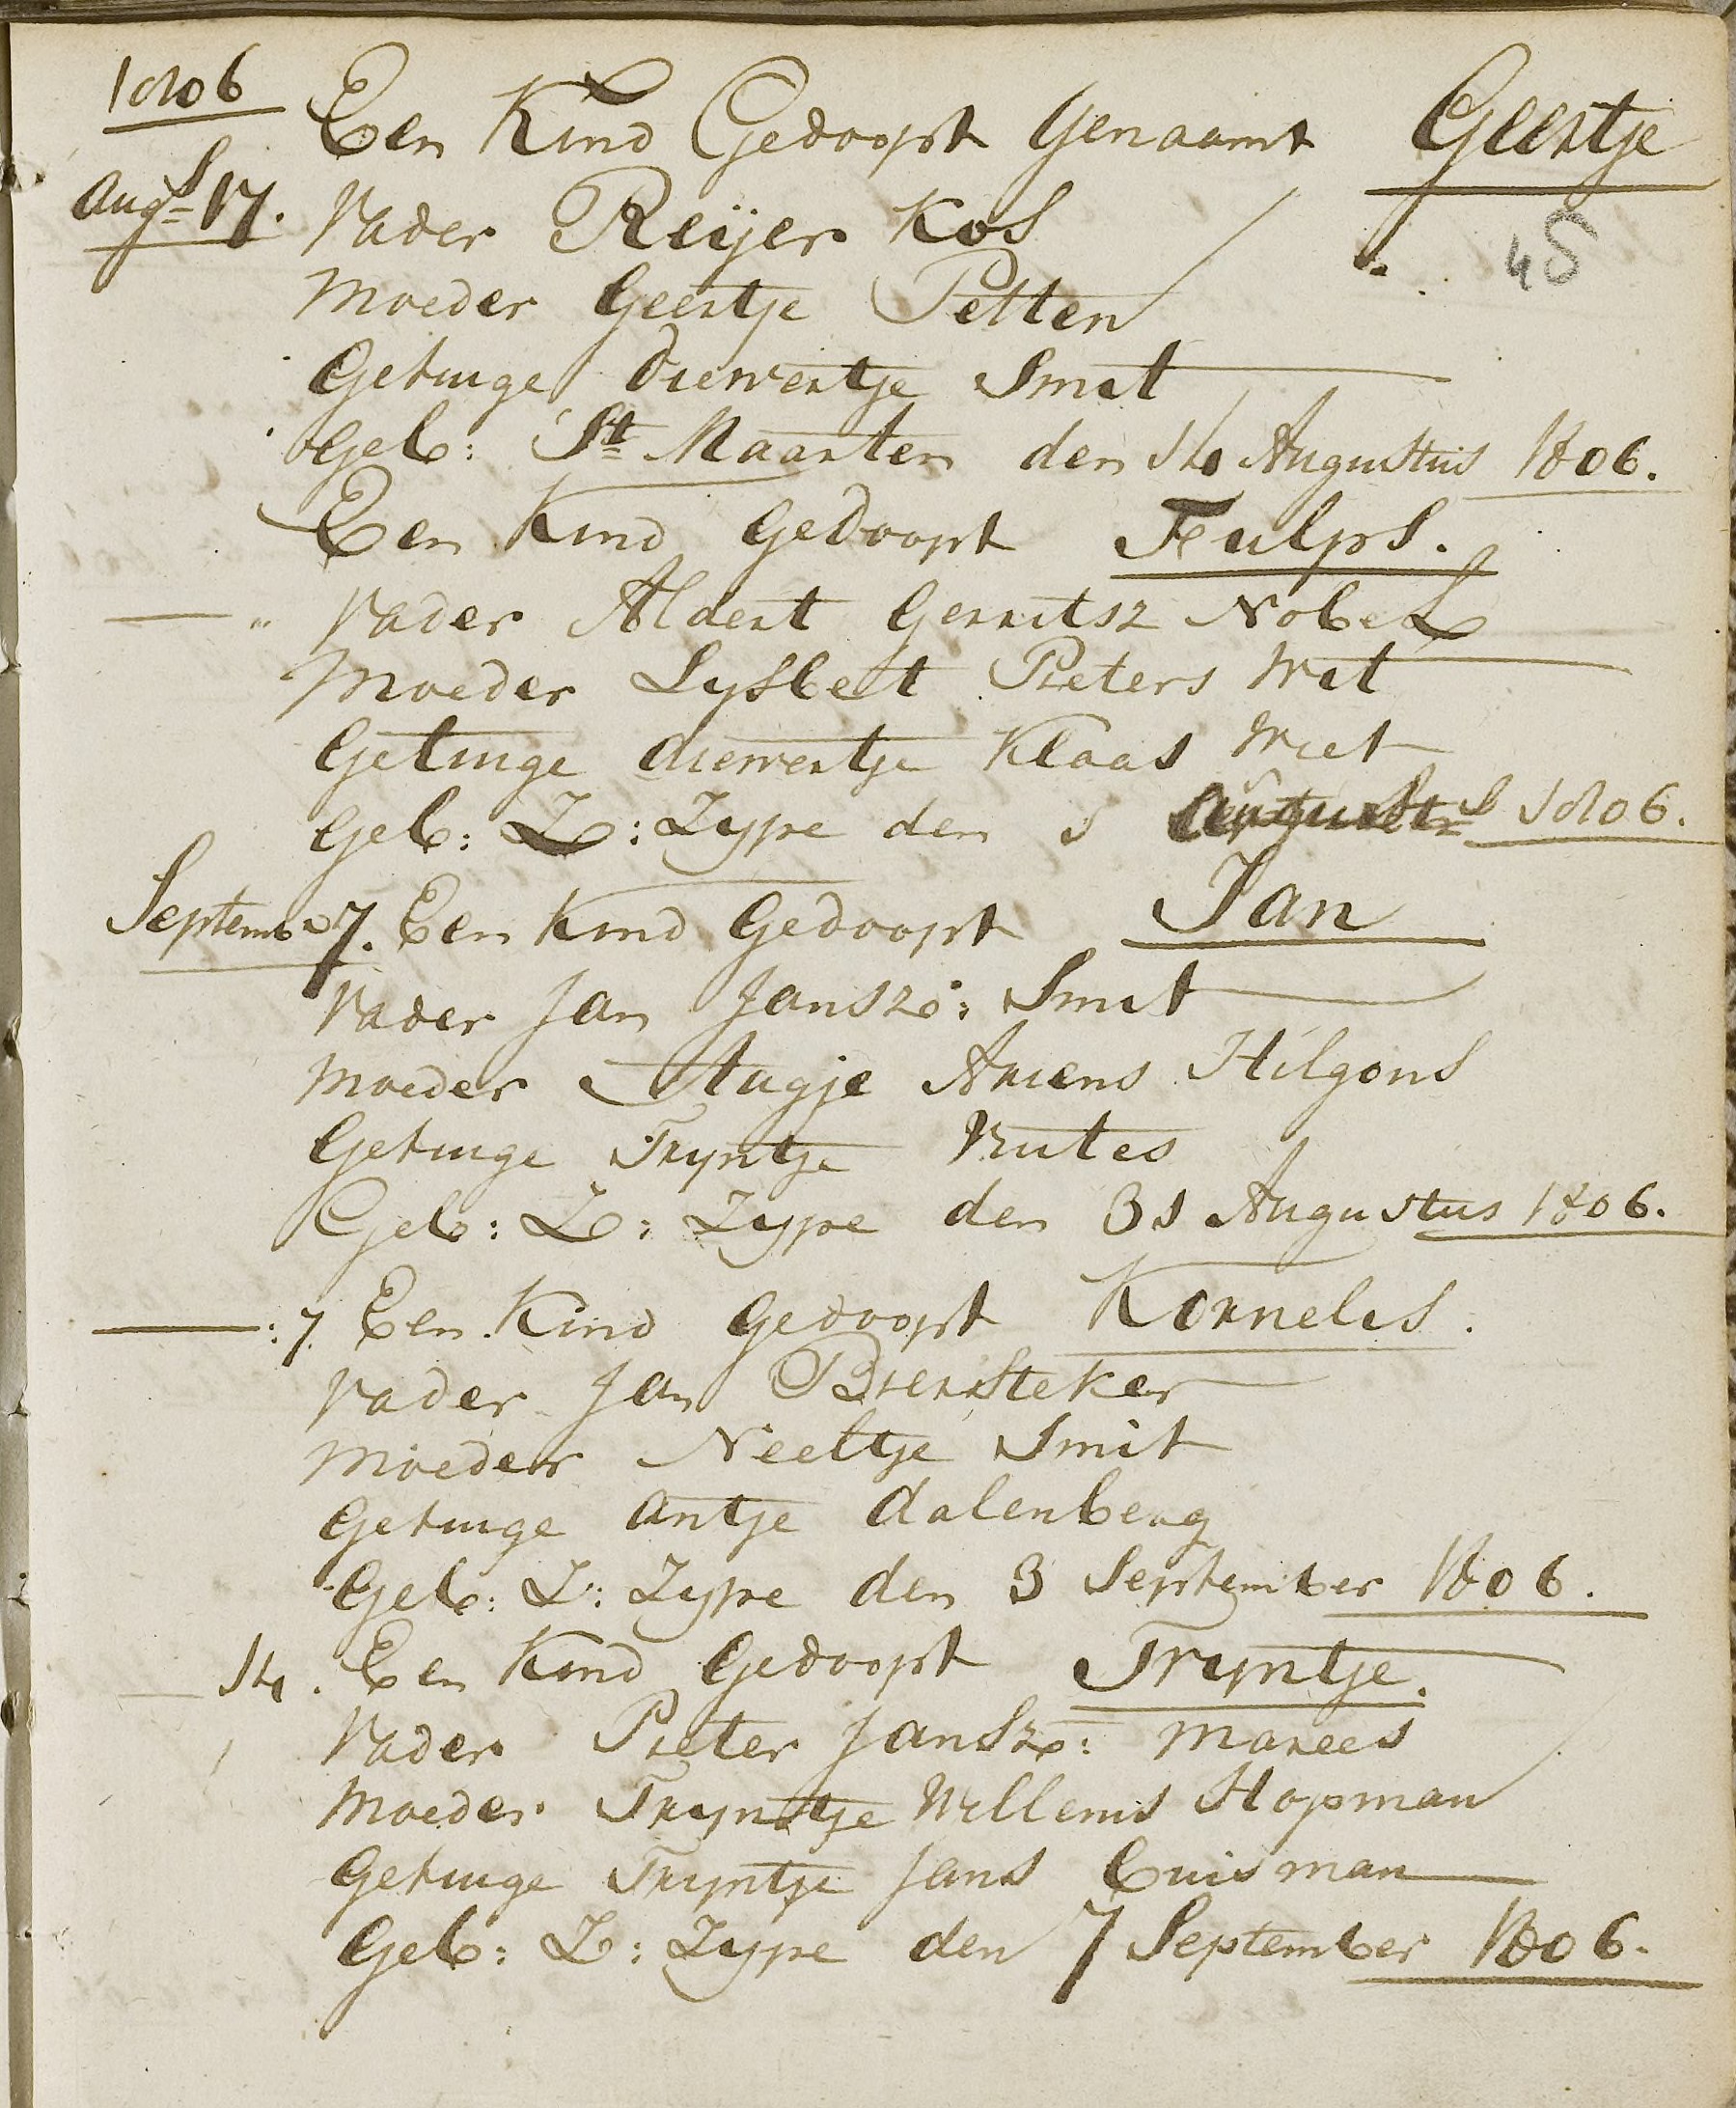 1806
Een Kind Gedoopt Genaamt Geertje
Augs 17. Vader Reijer Kos
45
Moeder Geertje Petten
Getuige diewertje Smit
Geb: St Maarten den 14 Augustus 1806.
Een Kind Gedoopt Fulps.
— " Vader Aldert Gerritsz Nobel
Moeder Lysbet Pieters Wit
Getuige diewertje Klaas Wit
Geb: Z: Zype den 1 Augusts 1806.
Septemb 7. Een Kind Gedoopt Jan
Vader Jan Jansz: Smit
Moeder Aagje Ariens Hilgons
Getuige Tryntje Kutes
Geb: Z: Zype den 31 Augustus 1806.
— : 7. Een Kind Gedoopt Kornelis.
Vader Jan Biersteker
Moeder Neeltje Smit
Getuige antje dalenberg
Geb: Z: Zype den 3 September 1806.
— 14. Een Kind Gedoopt Tryntje.
Vader Pieter Jansz: Marees
Moeder Tryntje Willems Hopman
Getuige Tryntje Jans Buisman
Geb: Z: Zype den 7 September 1806.